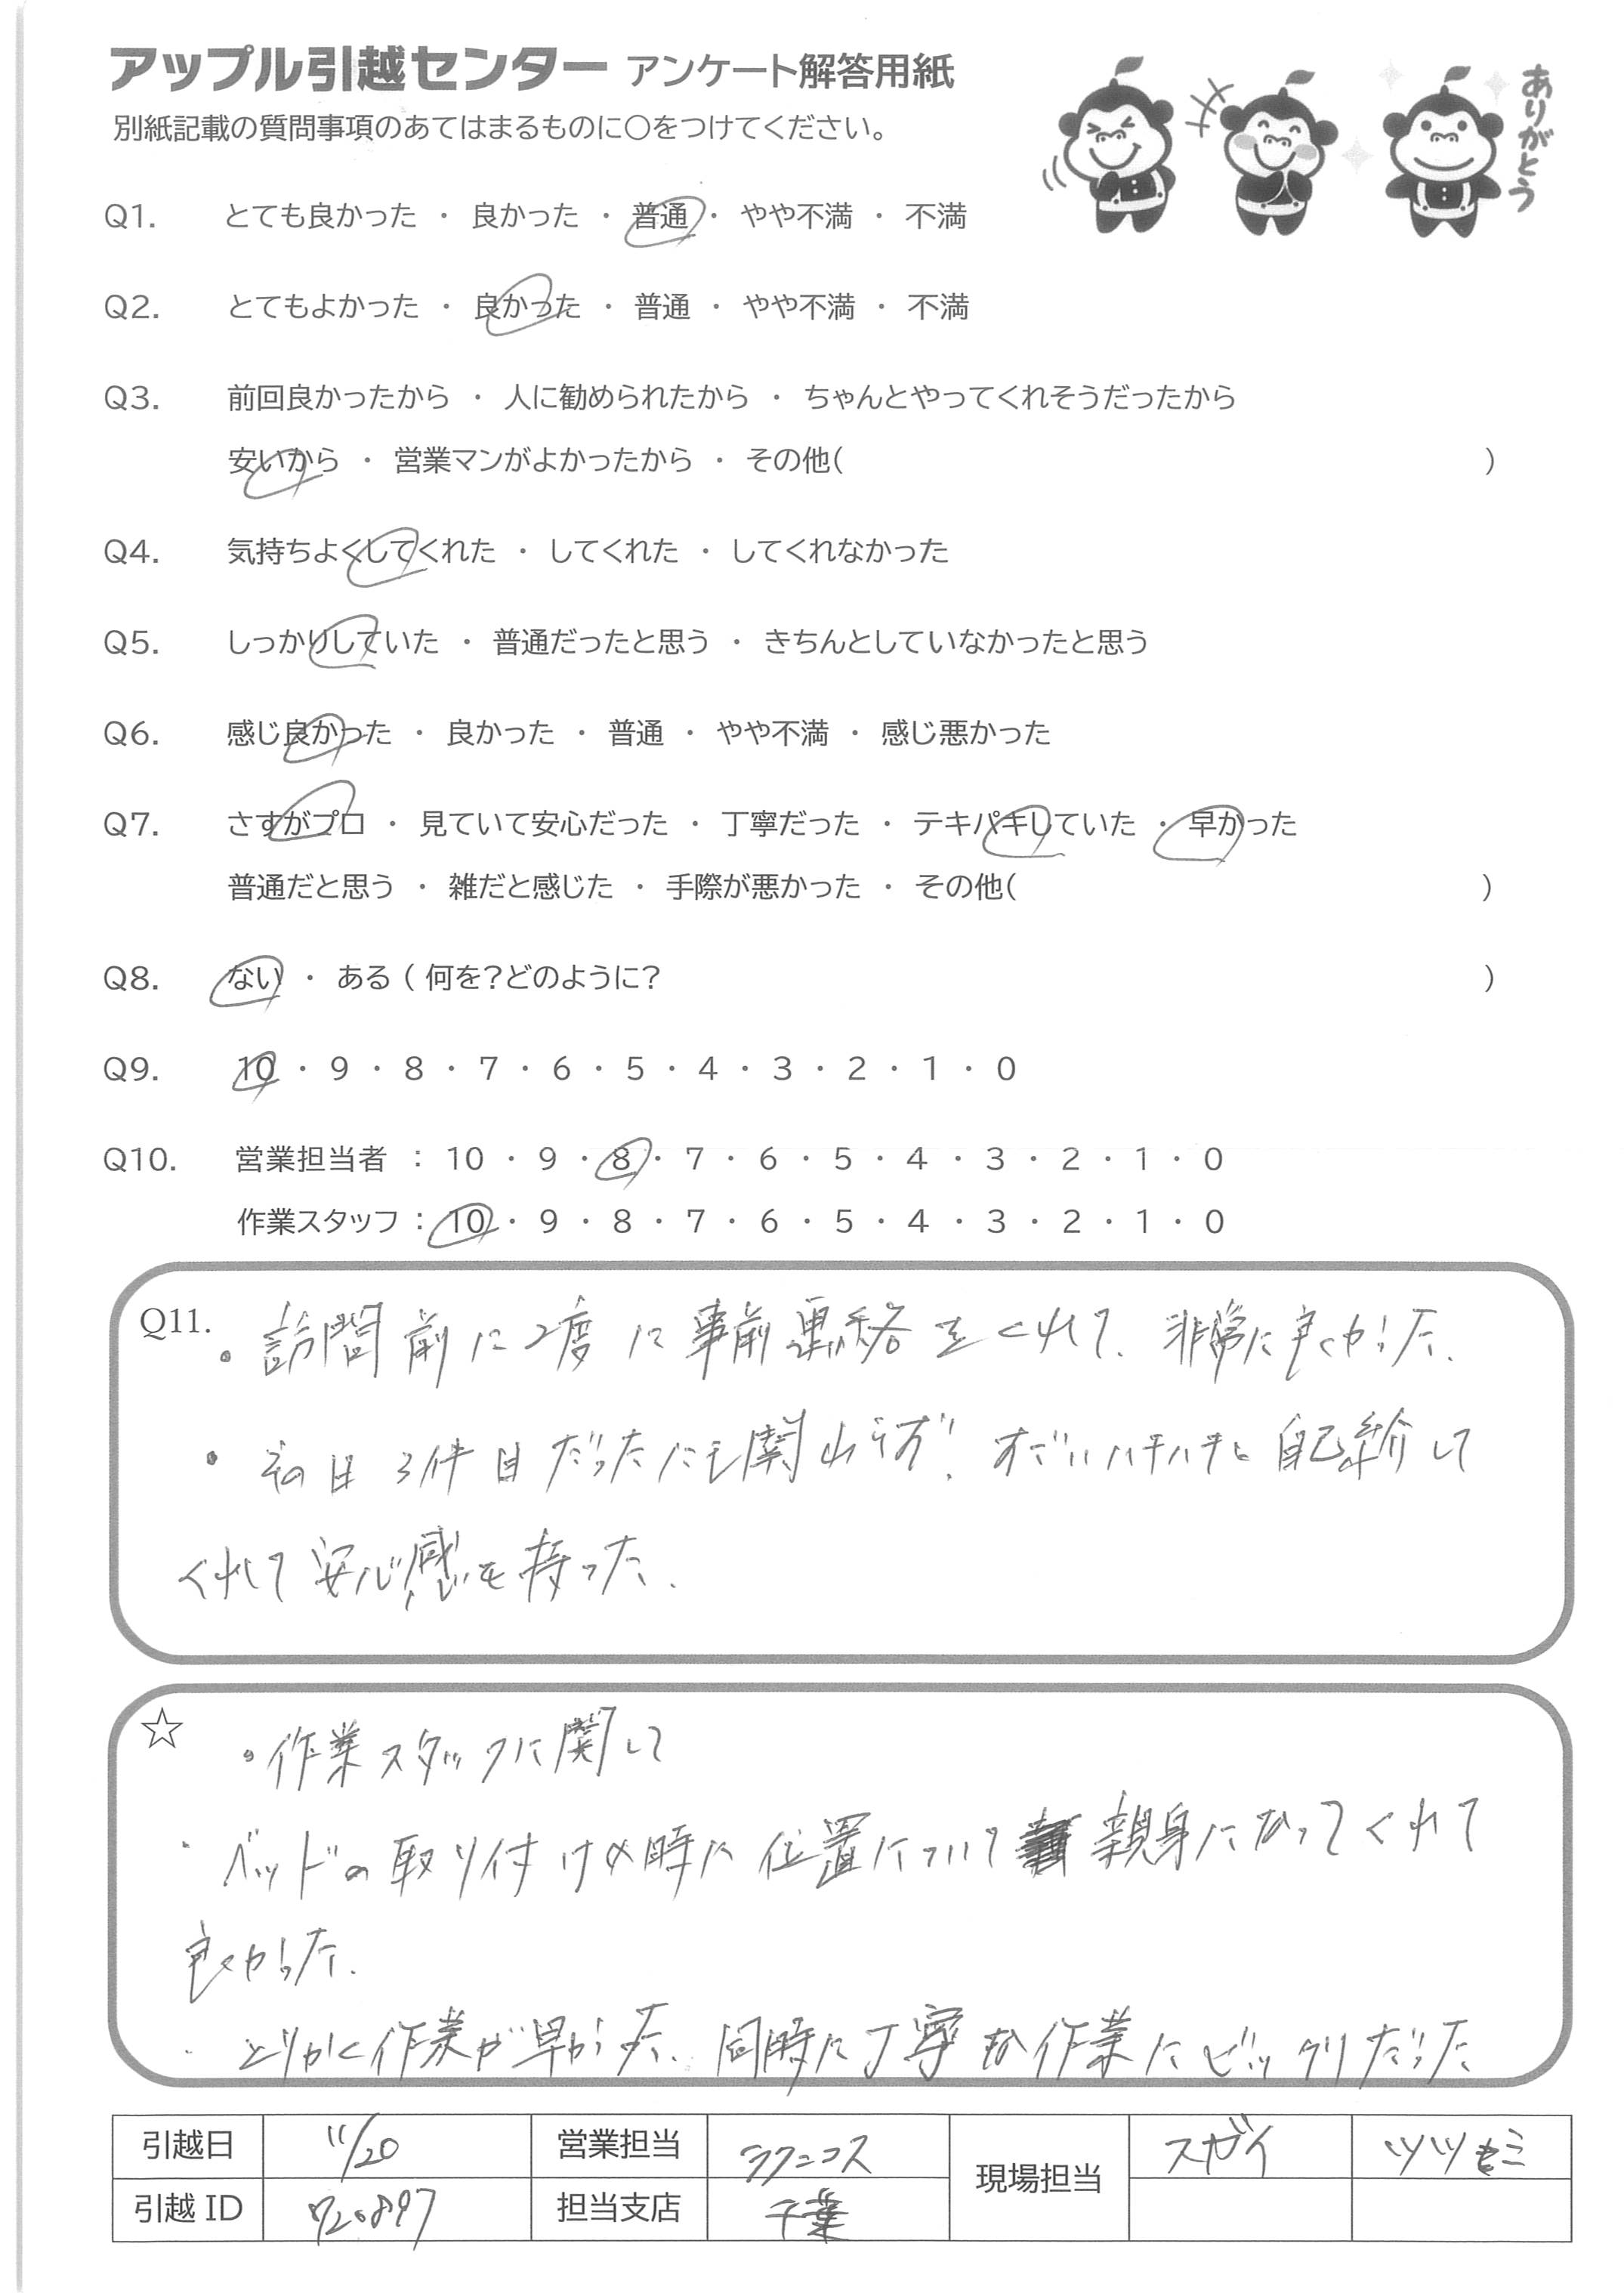 アップル引越センター アンケート解答用紙
別紙記載の質問事項のあてはまるものに○をつけてください。
ありがとう
Q1. とても良かった ・ 良かった ・ 普通 ・ やや不満 ・ 不満
Q2. とてもよかった ・ 良かった ・ 普通 ・ やや不満 ・ 不満
Q3. 前回良かったから ・ 人に勧められたから ・ ちゃんとやってくれそうだったから
安いから ・ 営業マンがよかったから ・ その他( )
Q4. 気持ちよくしてくれた ・ してくれた ・ してくれなかった
Q5. しっかりしていた ・ 普通だったと思う ・ きちんとしていなかったと思う
Q6. 感じ良かった ・ 良かった ・ 普通 ・ やや不満 ・ 感じ悪かった
Q7. さすがプロ ・ 見ていて安心だった ・ 丁寧だった ・ テキパキしていた ・ 早かった
普通だと思う ・ 雑だと感じた ・ 手際が悪かった ・ その他( )
Q8. ない ・ ある ( 何を?どのように? )
Q9. 10 ・ 9 ・ 8 ・ 7 ・ 6 ・ 5 ・ 4 ・ 3 ・ 2 ・ 1 ・ 0
Q10. 営業担当者 : 10 ・ 9 ・ 8 ・ 7 ・ 6 ・ 5 ・ 4 ・ 3 ・ 2 ・ 1 ・ 0
作業スタッフ : 10 ・ 9 ・ 8 ・ 7 ・ 6 ・ 5 ・ 4 ・ 3 ・ 2 ・ 1 ・ 0
Q11. ・訪問前に2度に事前連絡をくれて、非常に良かった.
・その日3件目だったにも関わらず、すごいハキハキと自己紹介して
くれて安心感を持った.
☆ ・作業スタッフに関して
・ベッドの取り付けの時に位置について親身になってくれて
良かった.
・とりかく作業が早かった、同時に丁寧な作業にビックリだった
引越日 11/20 営業担当 現場担当 スガイ
引越ID 720897 担当支店 千葉